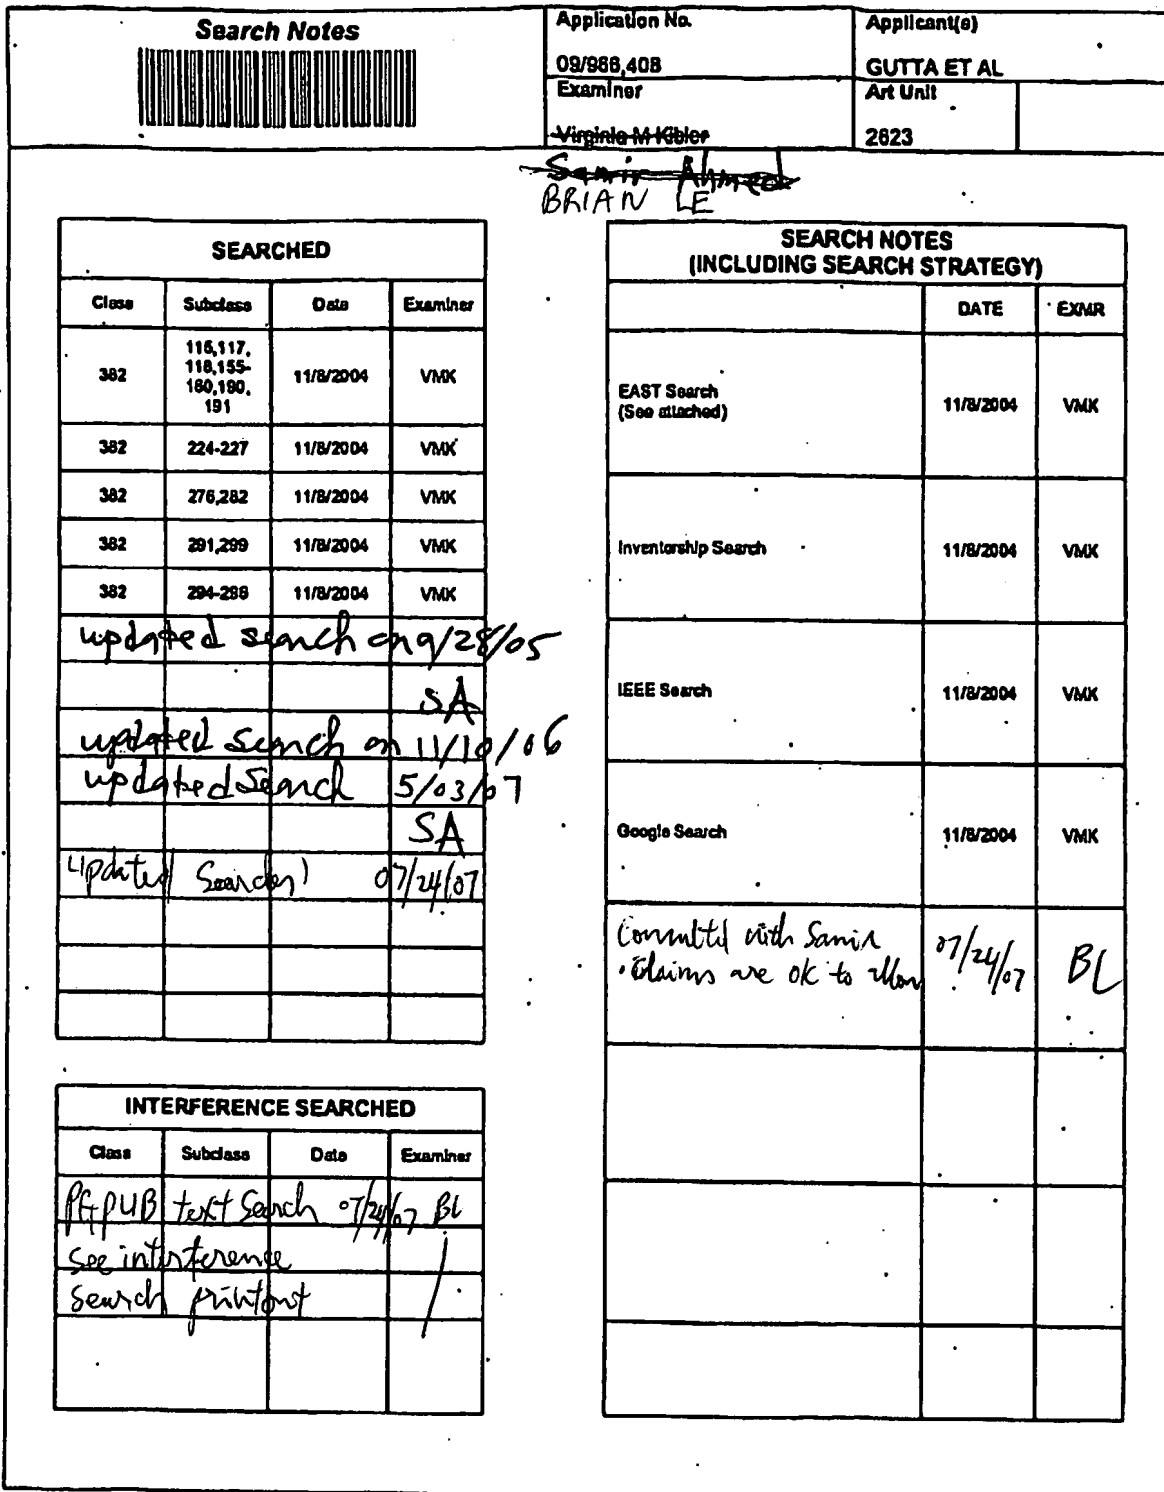 Search Notes
Application No.
09/966,408
Applicant(s)
GUTTA ET AL
Examiner
Virginia M Kibler
Art Unit
2623
Samir Ahmed
BRIAN LE
SEARCHED
Class Subclass Date Examiner
382 116,117,
118,155-
160,190,
191 11/8/2004 VMK
382 224-227 11/8/2004 VMK
382 276,282 11/8/2004 VMK
382 291,299 11/8/2004 VMK
382 294-298 11/8/2004 VMK
updated search on 9/28/05
SA
updated search on 11/10/06
updated Search 5/03/07
SA
updated Searches 07/24/07
INTERFERENCE SEARCHED
Class Subclass Date Examiner
PGPUB text Search 07/24/07 BL
See interference
Search printout
SEARCH NOTES
(INCLUDING SEARCH STRATEGY)
DATE EXMR
EAST Search
(See attached) 11/8/2004 VMK
Inventorship Search 11/8/2004 VMK
IEEE Search 11/8/2004 VMK
Google Search 11/8/2004 VMK
Consulted with Samir
Claims are ok to allow 07/24/07 BL